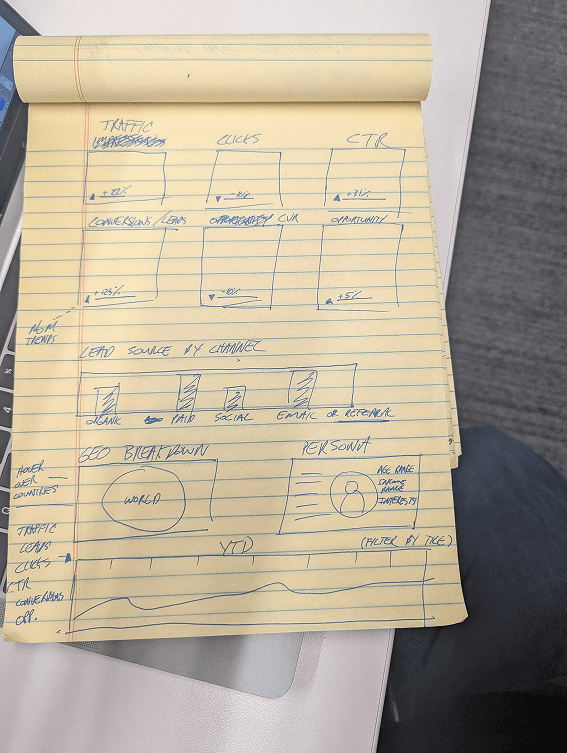 TRAFFIC
CLICKS
CTR
+22%
-10%
+31%
CONVERSIONS/LEADS
CVR
OPPORTUNITY
+123%
-10%
+5%
MOM
TRENDS
LEAD SOURCE BY CHANNEL
ORGANIC
PAID
SOCIAL
EMAIL OR REFERRAL
GEO BREAKDOWN
PERSONA
HOVER
OVER
COUNTRIES
WORLD
AGE RANGE
INCOME
RANGE
INTERESTS
TRAFFIC
LEADS
CLICKS
CTR
CONVERSIONS
OPP.
YTD
(FILTER BY TYPE)